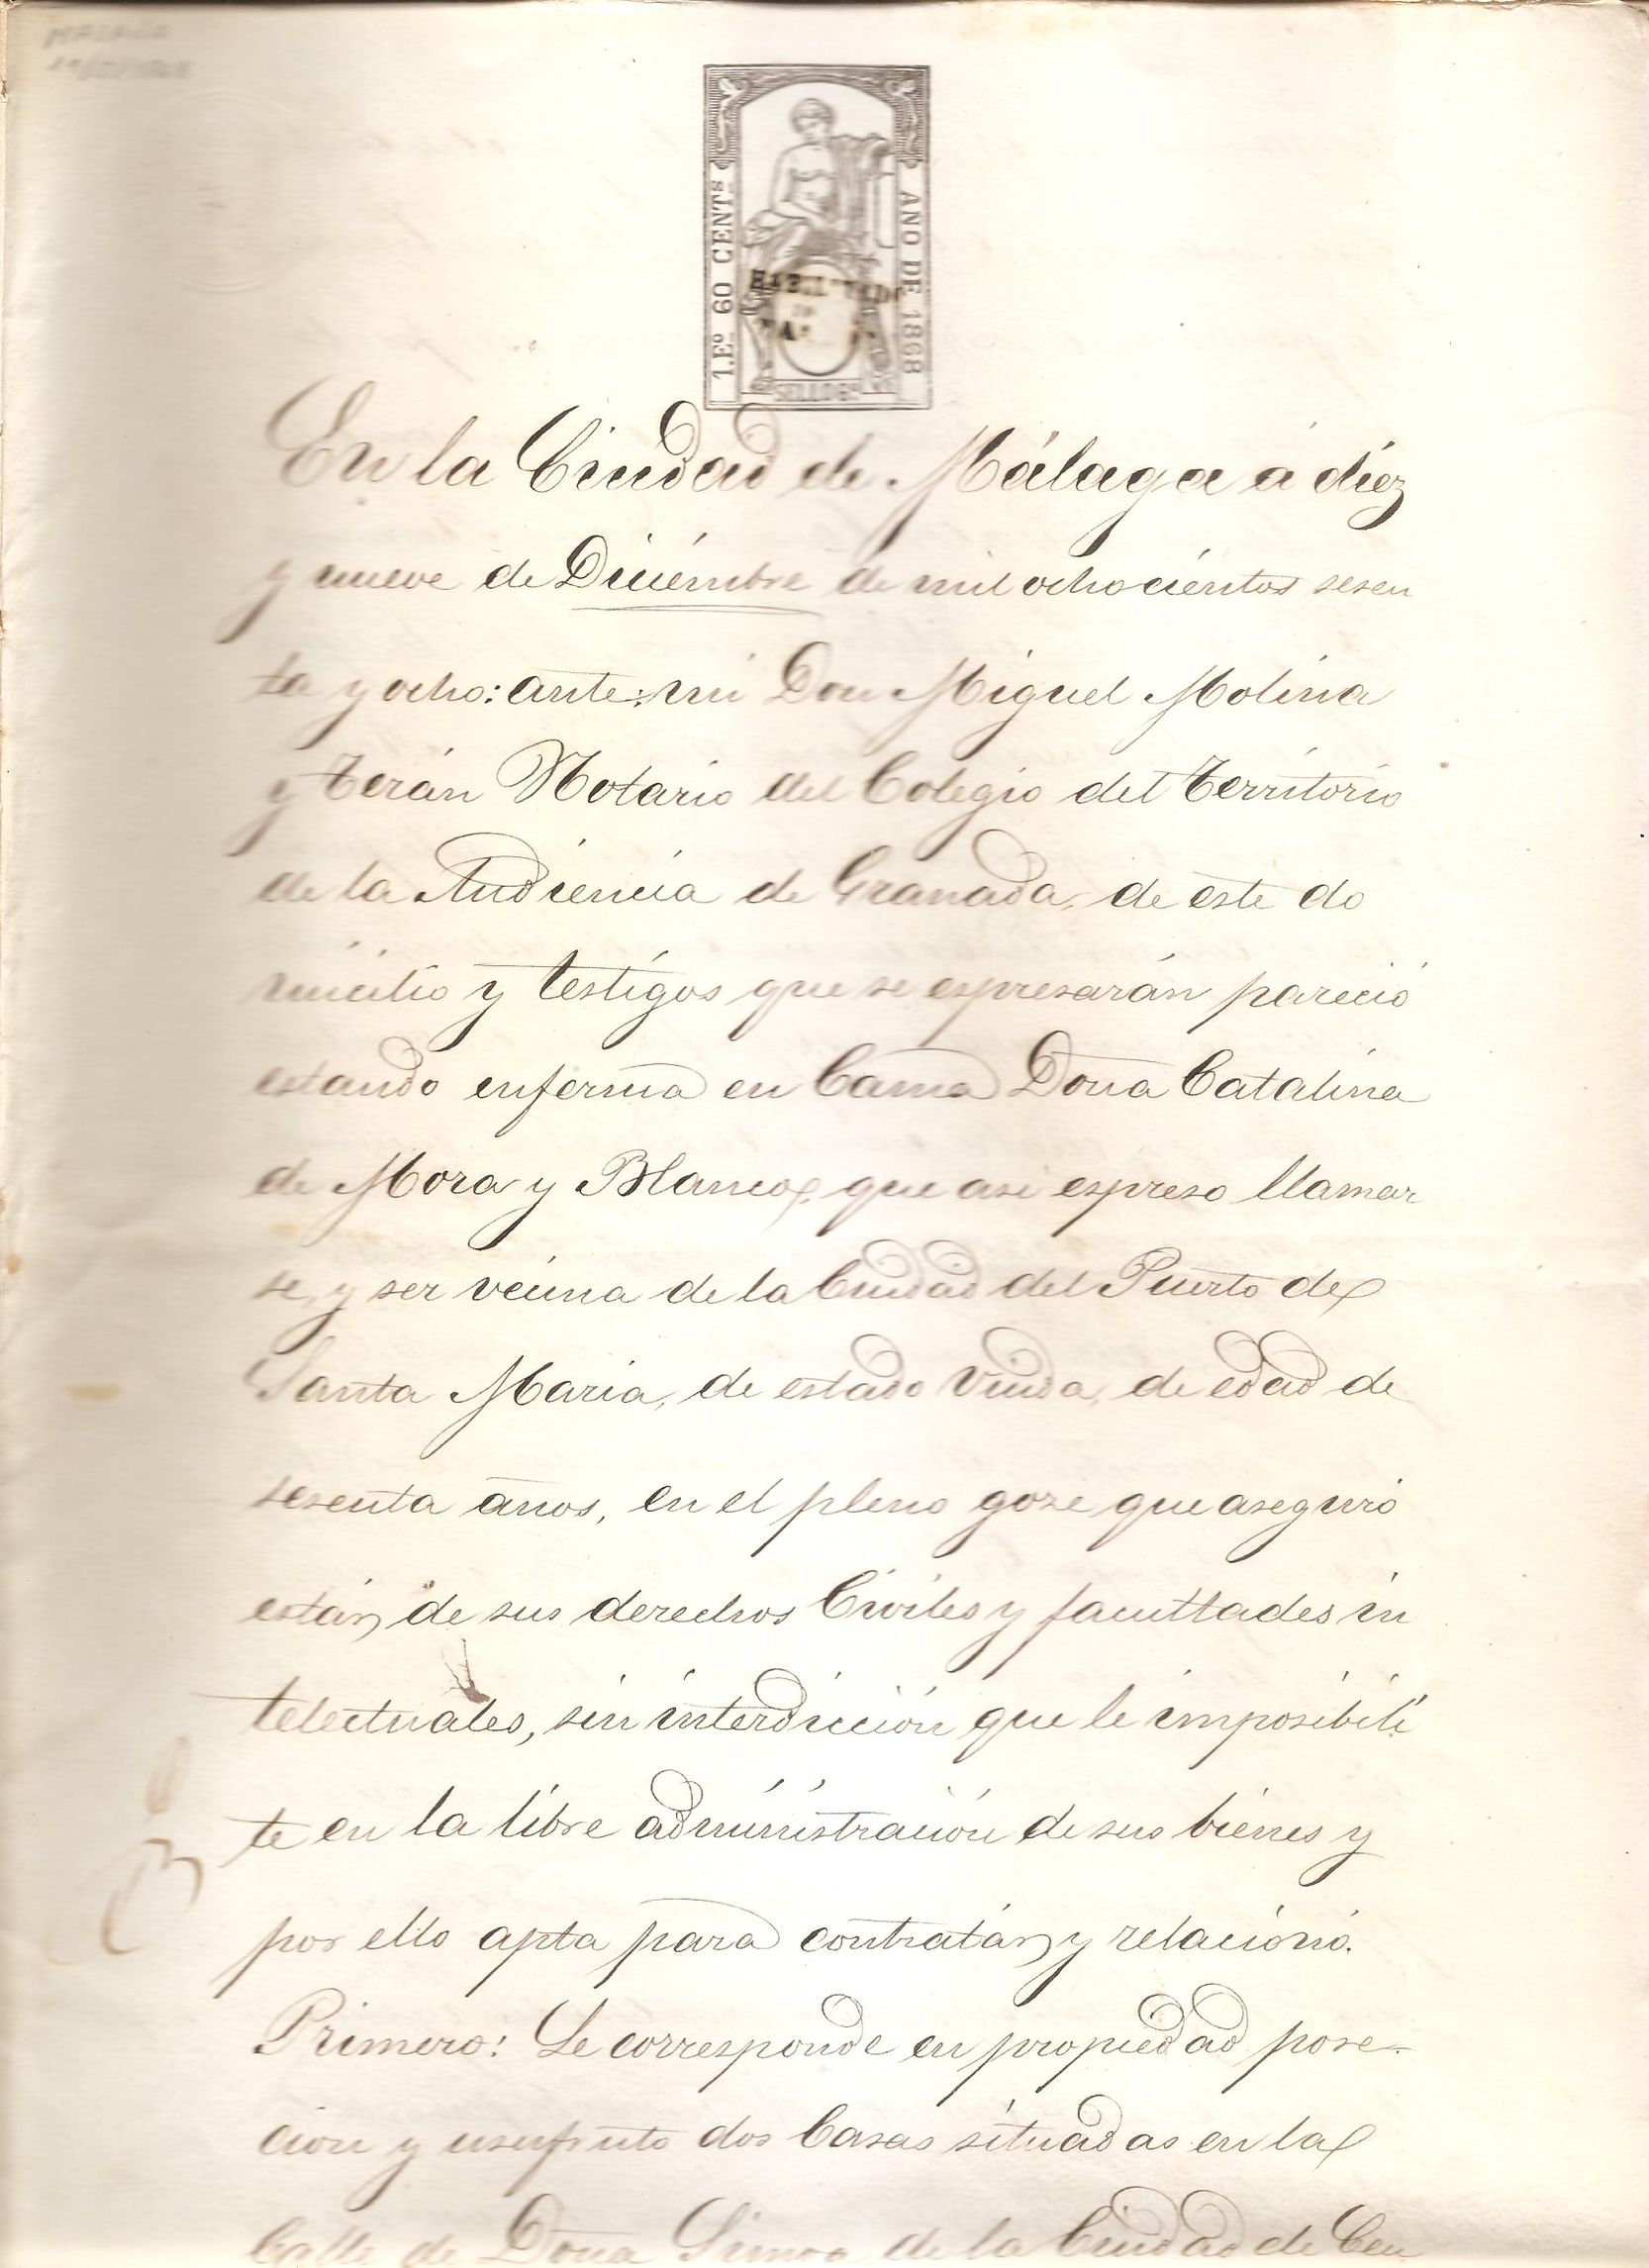 MALAGA
1.Eº 60 CENTˢ
AÑO DE 1868
HABILITADO
SELLO 6º
En la Ciudad de Málaga á diez
y nueve de Diciémbre de mil ochocientos sesen
ta y ocho: ante: mi Don Miguel Molina
y Terán Notario del Colegio del Territorio
de la Audiencia de Granada, de este do
micilio y testigos que se espresarán pareció
estando enferma en Cama Doña Catalina
de Mora y Blanco, que asi espreso llamar
se, y ser vecina de la Ciudad del Puerto de
Santa Maria, de estado Viuda, de edad de
sesenta años, en el pleno gose que aseguró
están de sus derechos Civiles y facultades in
telectuales, sin interdicción que le imposibili
te en la libre administración de sus bienes y
por ello apta para contratár y relacionó.
Primero: Le corresponde en propiedad pose-
cion y usufruto dos Casas situadas en la
Calle de Doña Simoa de la Ciudad de Ceu